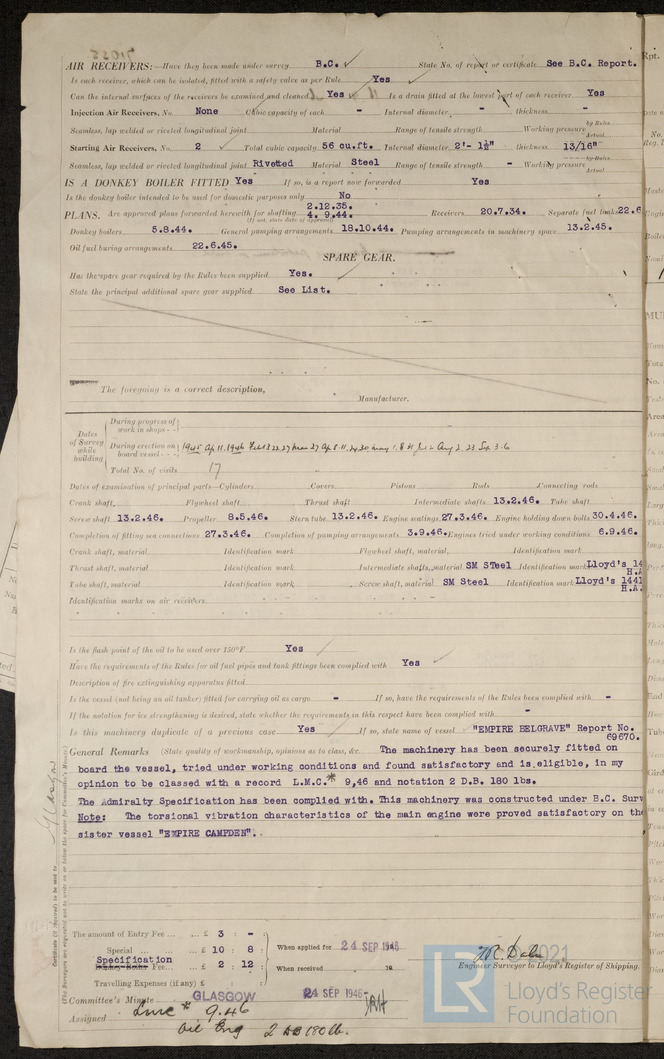 71055
AIR RECEIVERS:—Have they been made under survey B.C. State No. of report or certificate See B.C. Report.
Is each receiver, which can be isolated, fitted with a safety valve as per Rule Yes
Can the internal surfaces of the receivers be examined and cleaned Yes Is a drain fitted at the lowest part of each receiver Yes
Injection Air Receivers, No. None Cubic capacity of each - Internal diameter - thickness -
Seamless, lap welded or riveted longitudinal joint Material Range of tensile strength Working pressure by Rules Actual
Starting Air Receivers, No. 2 Total cubic capacity 56 cu.ft. Internal diameter 2'- 1½" thickness 13/16"
Seamless, lap welded or riveted longitudinal joint Rivetted Material Steel Range of tensile strength - Working pressure by Rules Actual
IS A DONKEY BOILER FITTED Yes If so, is a report now forwarded Yes
Is the donkey boiler intended to be used for domestic purposes only No
PLANS. Are approved plans forwarded herewith for shafting 2.12.35. 4. 9.44. Receivers 20.7.34. Separate fuel tanks 22.6
(If not, state date of approval)
Donkey boilers 5.8.44. General pumping arrangements 18.10.44. Pumping arrangements in machinery space 13.2.45.
Oil fuel burning arrangements 22.6.45.
SPARE GEAR.
Has the spare gear required by the Rules been supplied Yes.
State the principal additional spare gear supplied See List.
The foregoing is a correct description,
Manufacturer.
Dates of Survey while building
During progress of work in shops - -
During erection on board vessel - - 1945 Ap 11, 1946 Feb 13 22 27 Mar 27 Ap 8 11 24 30 May 1 8 Aug 2 23 Sep 3 6
Total No. of visits 17
Dates of examination of principal parts—Cylinders Covers Pistons Rods Connecting rods
Crank shaft Flywheel shaft Thrust shaft Intermediate shafts 13.2.46. Tube shaft
Screw shaft 13.2.46. Propeller 8.5.46. Stern tube 13.2.46. Engine seatings 27.3.46. Engine holding down bolts 30.4.46.
Completion of fitting sea connections 27.3.46. Completion of pumping arrangements 3.9.46. Engines tried under working conditions 6.9.46.
Crank shaft, material Identification mark Flywheel shaft, material Identification mark
Thrust shaft, material Identification mark Intermediate shafts, material SM STeel Identification mark Lloyd's 14
H.A.
Tube shaft, material Identification mark Screw shaft, material SM Steel Identification mark Lloyd's 1441
H.A.
Identification marks on air receivers
Is the flash point of the oil to be used over 150°F Yes
Have the requirements of the Rules for oil fuel pipes and tank fittings been complied with Yes
Description of fire extinguishing apparatus fitted
Is the vessel (not being an oil tanker) fitted for carrying oil as cargo - If so, have the requirements of the Rules been complied with -
If the notation for ice strengthening is desired, state whether the requirements in this respect have been complied with -
Is this machinery duplicate of a previous case Yes If so, state name of vessel "EMPIRE BELGRAVE" Report No.
69670.
General Remarks (State quality of workmanship, opinions as to class, &c. The machinery has been securely fitted on
board the vessel, tried under working conditions and found satisfactory and is eligible, in my
opinion to be classed with a record L.M.C.* 9,46 and notation 2 D.B. 180 lbs.
The Admiralty Specification has been complied with. This machinery was constructed under B.C. Surv
Note: The torsional vibration characteristics of the main engine were proved satisfactory on the
sister vessel "EMPIRE CAMPDEN".
Glasgow
Certificate (if required) to be sent to
(The Surveyors are requested not to write on or below the space for Committee's Minute.)
The amount of Entry Fee ... £ 3 : - :
Special ... £ 10 : 8 :
Specification Fee ... £ 2 : 12 :
Travelling Expenses (if any) £ : :
When applied for 24 SEP 1946
When received 19
Engineer Surveyor to Lloyd's Register of Shipping.
Committee's Minute GLASGOW 24 SEP 1946
Assigned Lmc * 9.46
Oil Eng 2 DB 180 lb.
© 2021
LR
Lloyd's Register
Foundation